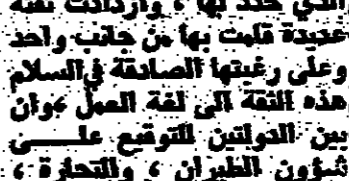 الذي حدد لها ، وازدادت ثقته
عديدة قامت بها من جانب واحد
وعلى رغبتها الصادقة في السلام
هذه الثقة الى لغة العمل ، وان
بين الدولتين للتوقيع علـــى
شؤون الطيران ، والتجارة ،